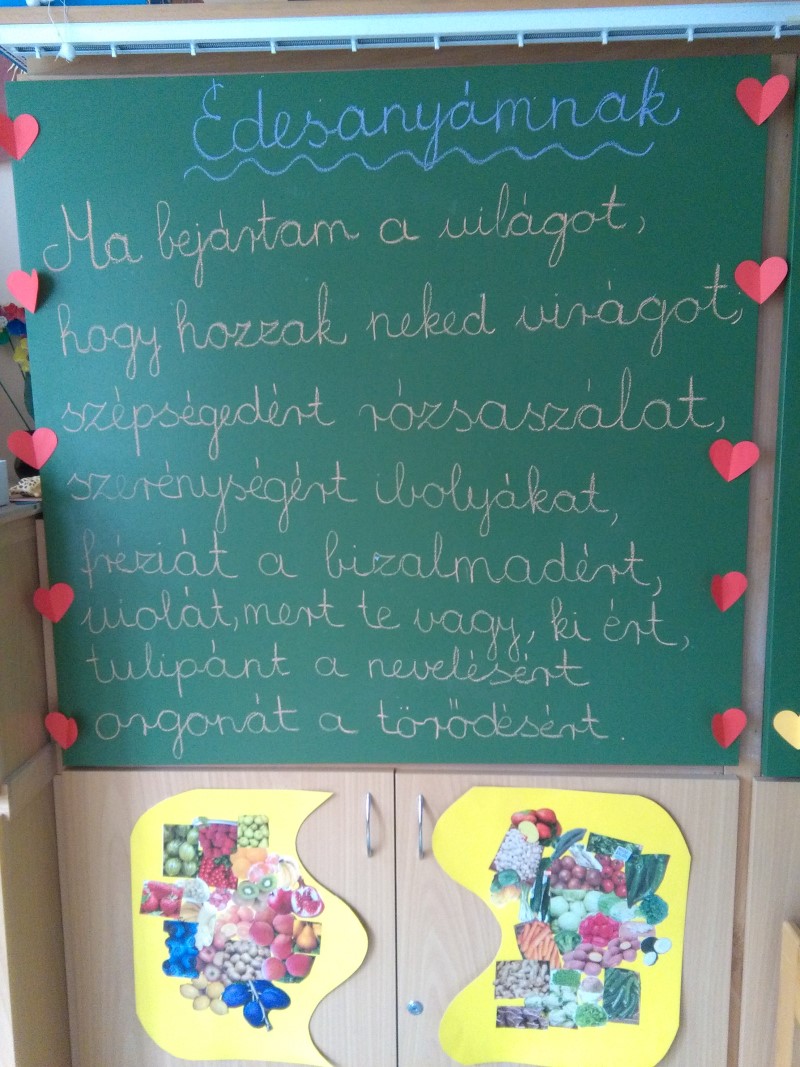 Édesanyámnak
Ma bejártam a világot,
hogy hozzak neked virágot,
szépségedért rózsaszálat,
szerénységért ibolyákat,
fréziát a bizalmadért,
violát, mert te vagy, ki ért,
tulipánt a nevelésért
orgonát a törődésért.